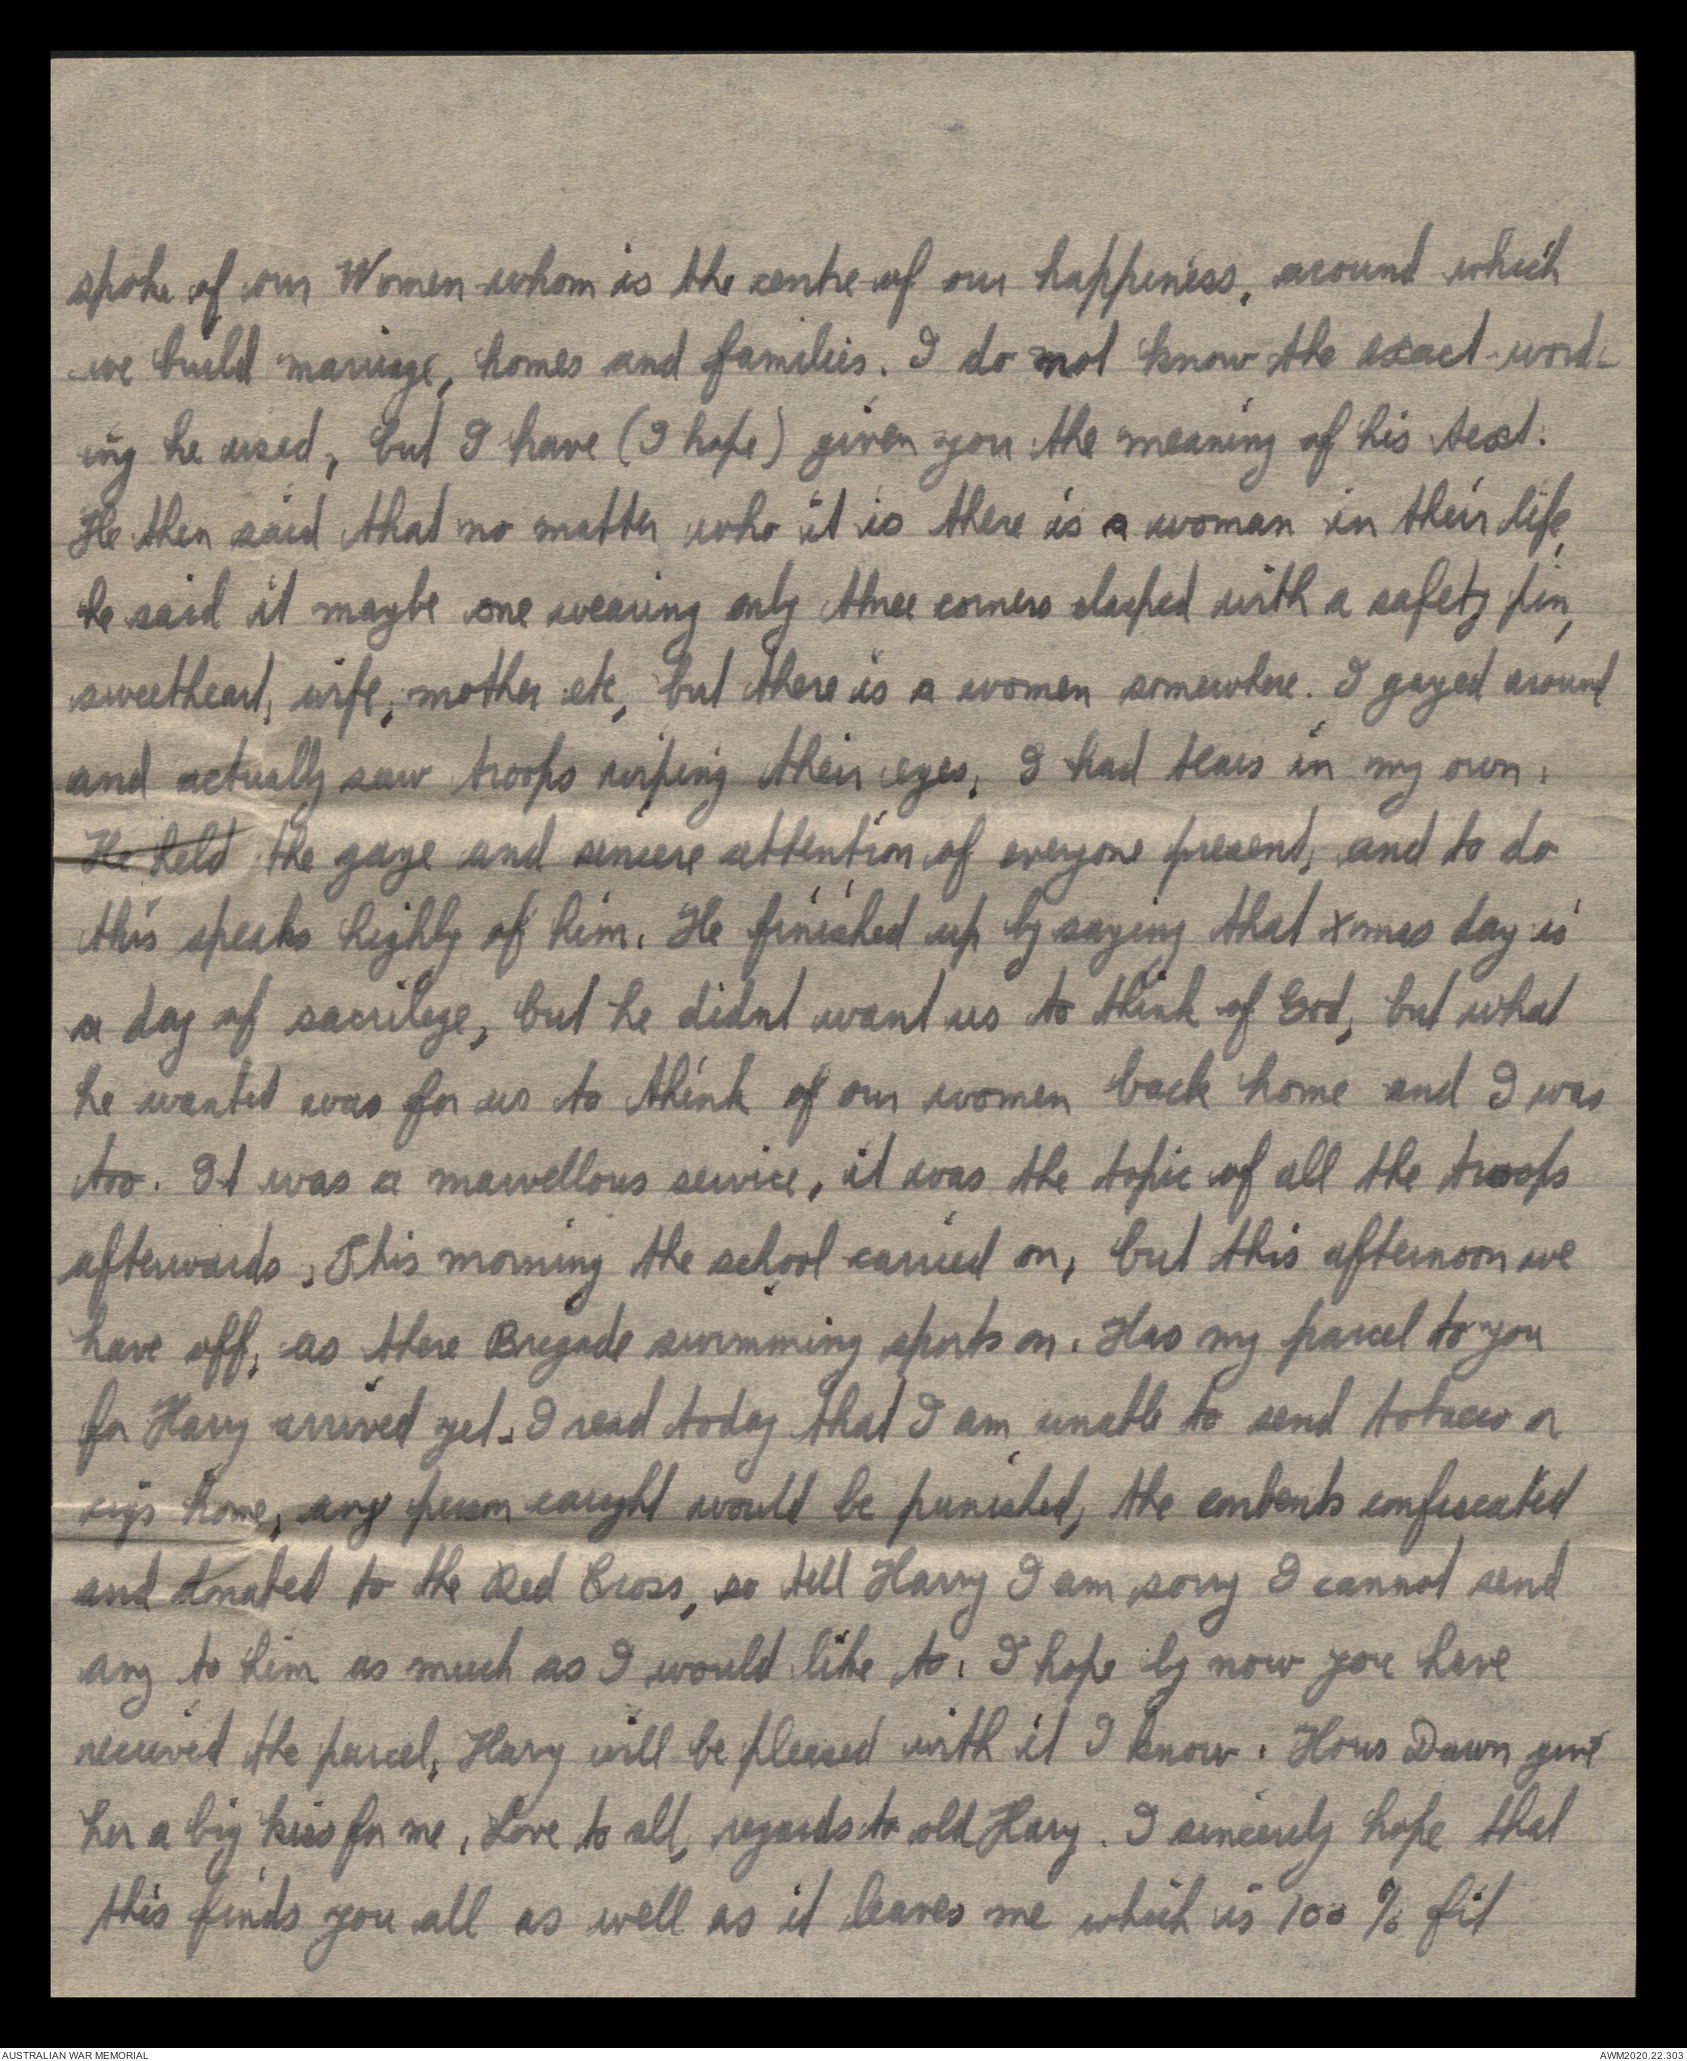 spoke of our Women whom is the centre of our happiness, around which
we build marriage, homes and families. I do not know the exact word-
ing he used, but I have (I hope) given you the meaning of his text.
He then said that no matter who it is there is a woman in their life,
he said it maybe one wearing only three corners clasped with a safety pin,
sweetheart, wife, mother etc, but there is a women somewhere. I gazed around
and actually saw troops wiping their eyes, I had tears in my own.
He held the gaze and sincere attention of everyone present, and to do
this speaks highly of him. He finished up by saying that Xmas day is
a day of sacrilege, but he didnt want us to think of God, but what
he wanted was for us to think of our women back home and I was
too. It was a marvellous service, it was the topic of all the troops
afterwards, This morning the school carried on, but this afternoon we
have off, as there Brigade swimming sports on. Has my parcel to you
for Harry arrived yet. I read today that I am unable to send tobacco or
cigs home, any person caught would be punished, the contents confiscated
and donated to the Red Cross, so tell Harry I am sorry I cannot send
any to him as much as I would like to. I hope by now you have
received the parcel, Harry will be pleased with it I know. Hows Dawn give
her a big kiss for me, Love to all, regards to old Harry. I sincerely hope that
this finds you all as well as it leaves me which is 100 % fit
AUSTRALIAN WAR MEMORIAL
AWM2020.22.303